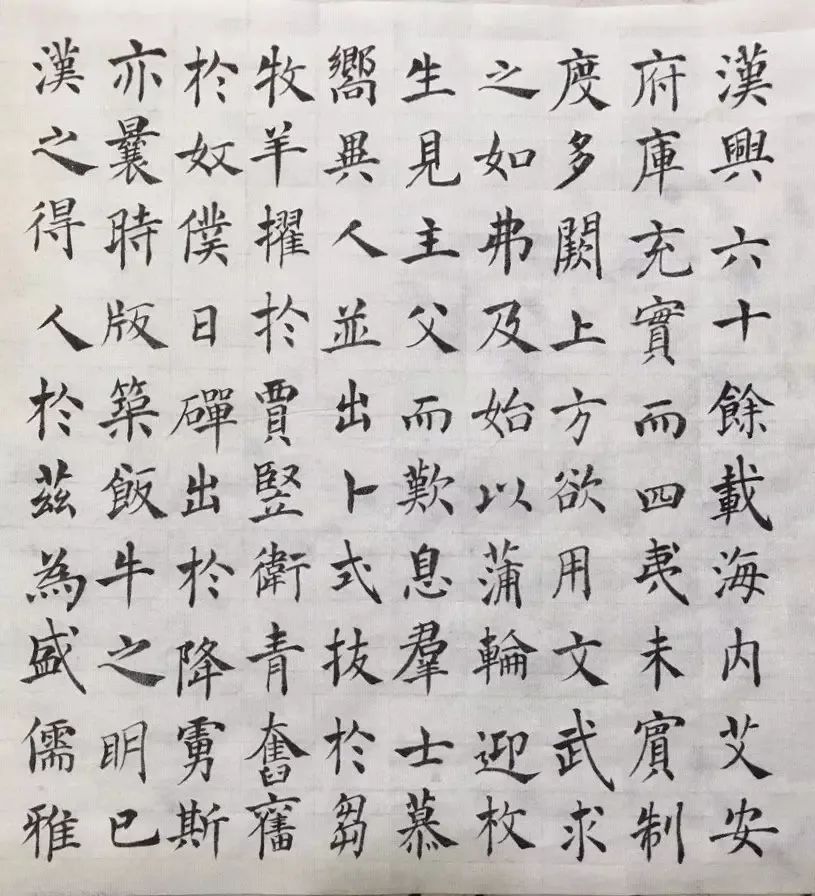 漢興六十餘載海内艾安
府庫充實而四夷未賓制
度多闕上方欲用文武求
之如弗及始以蒲輪迎枚
生見主父而歎息羣士慕
嚮異人並出卜式拔於芻
牧羊擢於賈竪衛青奮
於奴僕日磾出於降虜斯
亦曩時版築飯牛之明巳
漢之得人於茲為盛儒雅